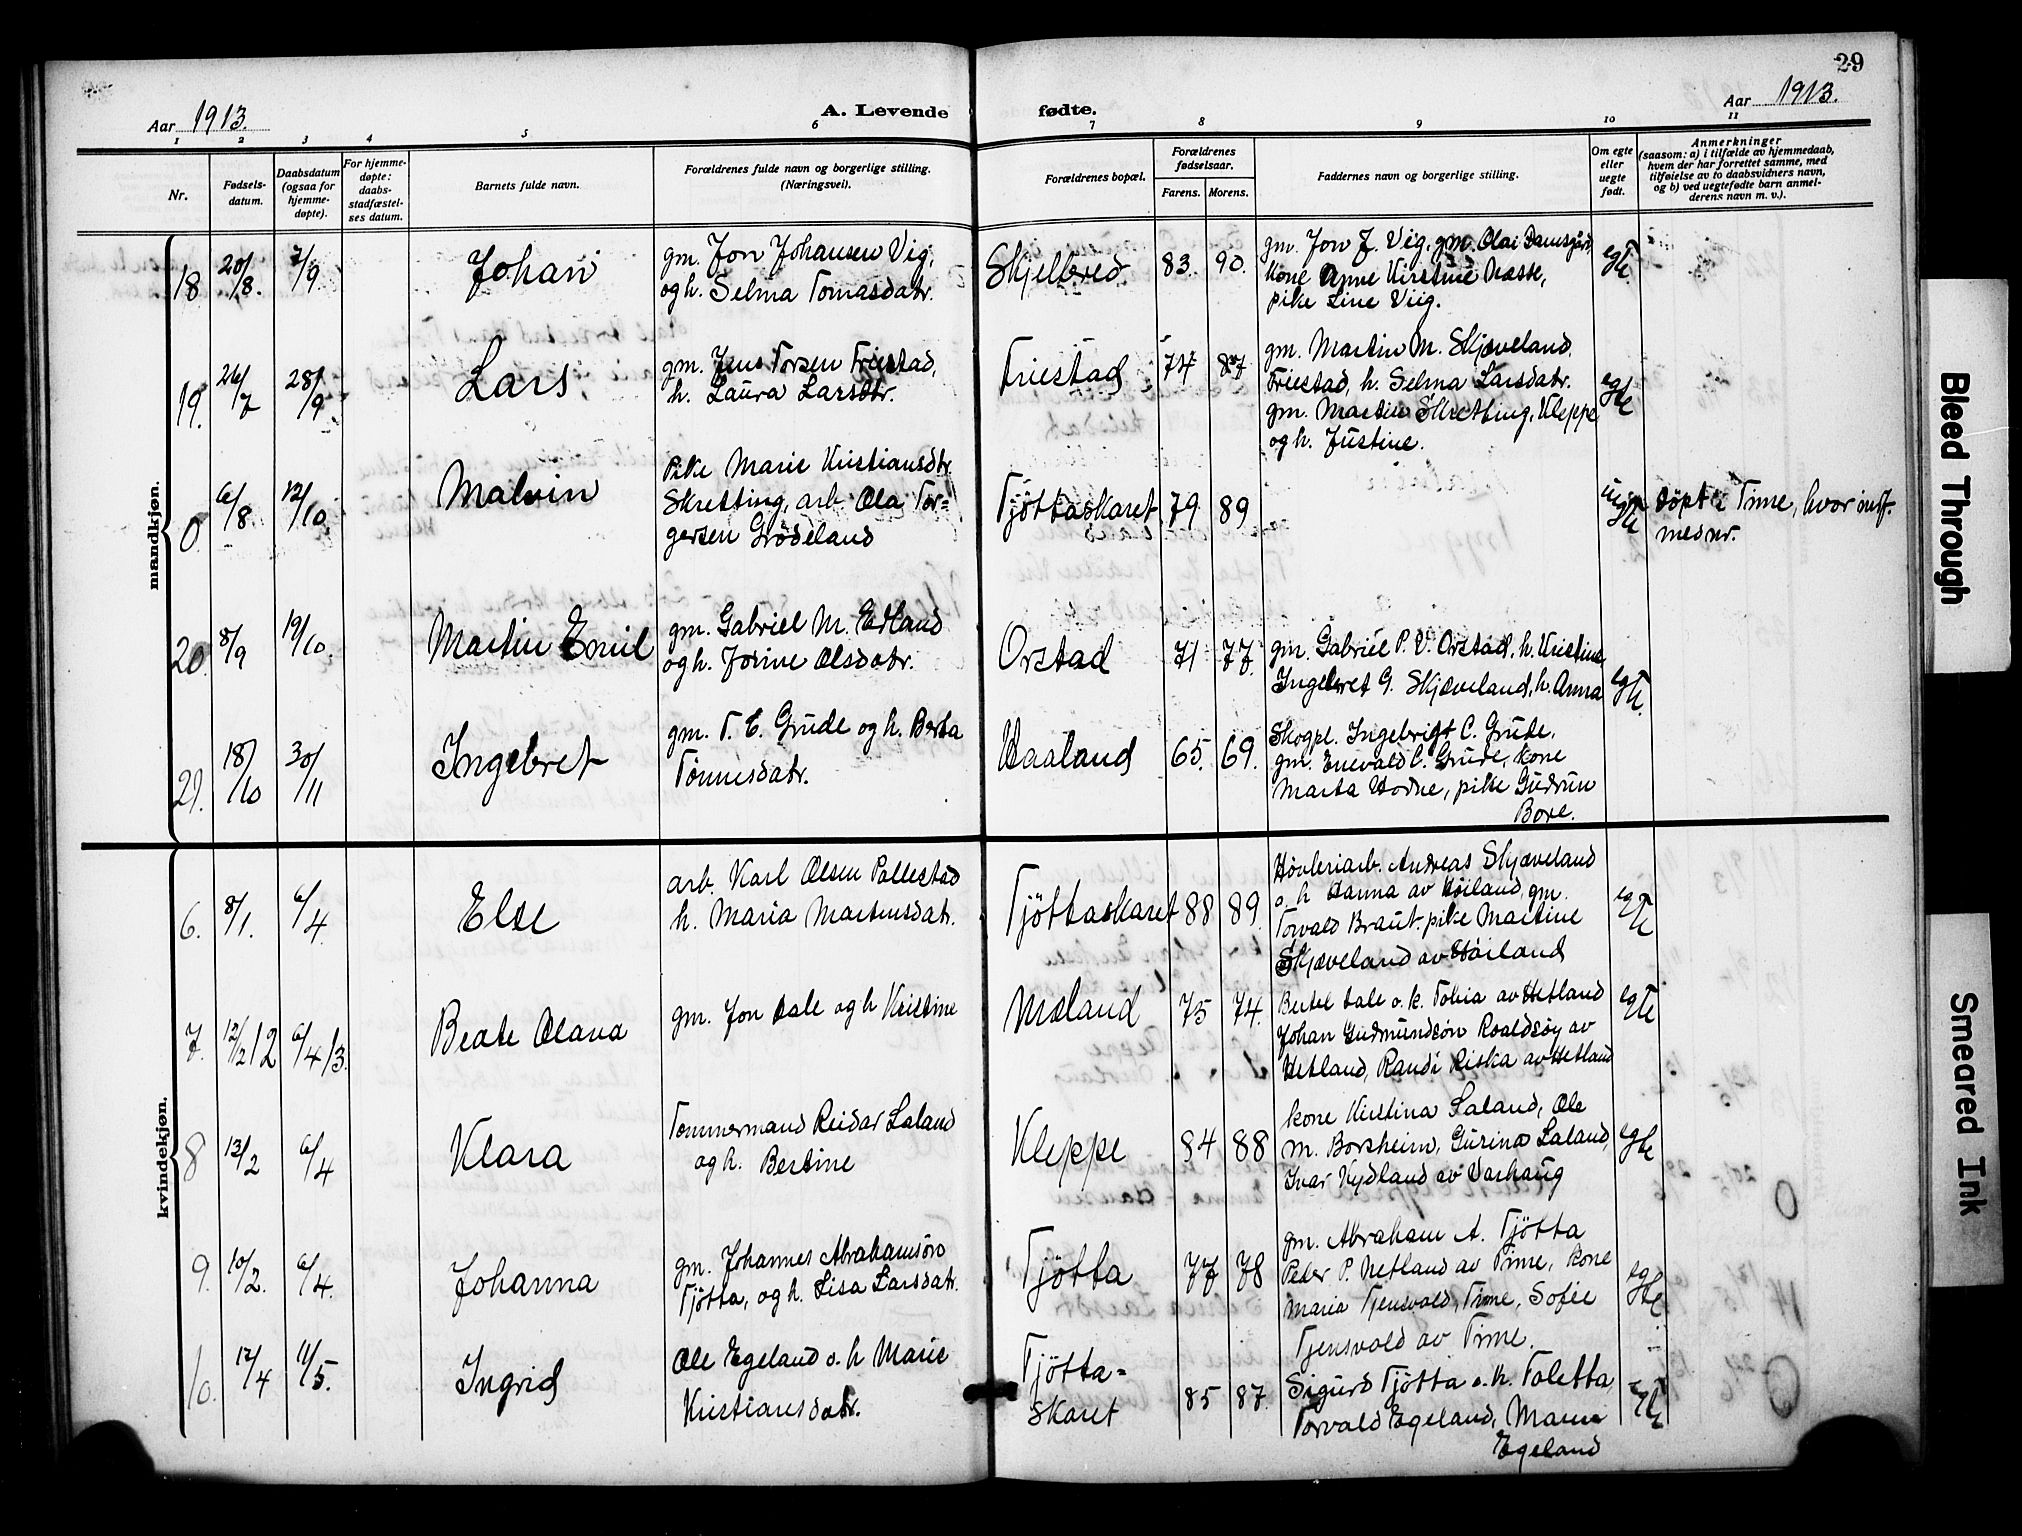 29
Aar 1913.
A. Levende fødte.
Aar 1913.
1 2 3 4 5 6 7 8 9 10 11
Nr.
Fødsels-
datum.
Daabsdatum
(ogsaa for
hjemme-
døpte).
For hjemme-
døpte:
daabs-
stadfæstel-
ses datum.
Barnets fulde navn.
Forældrenes fulde navn og borgerlige stilling.
(Næringsvei).
Forældrenes bopæl.
Forældrenes
fødselsaar.
Farens. Morens.
Faddernes navn og borgerlige stilling.
Om egte
eller
uegte
født.
Anmerkninger
(saasom: a) i tilfælde av hjemmedaab,
hvem der har forrettet samme, med
tilføielse av to daabsvidners navn,
og b) ved uegtefødte barn anmel-
derens navn m. v.).
mandkjøn.
18 20/8. 7/9 Johan
gm. Jon Johansen Vig,
og h. Selma Tomasdatr.
Skjelbred 83. 90.
gm. Jon J. Vig, gm. Olai Damsgård,
kone Anne Kirstine Næsse,
pike Line Viig.
egte.
19. 26/7 28/9 Lars
gm. Jens Torsen Friestad,
h. Laura Larsdtr.
Friestad 74 87
gm. Martin M. Skjæveland
Friestad, h. Selma Larsdatr.
gm. Martin Skretting, Kleppe
og h. Justine.
egte
0. 6/8 12/10 Malvin
Pike Marie Kristiansdtr.
Skretting, arb. Ola Tor-
gersen Grødeland
Tjøttaskaret 79 89
uegte
døpt i Time, hvor indf.
med nr.
20. 8/9 19/10 Martin Emil
gm. Gabriel M. Edland
og h. Jorine Olsdatr.
Orstad 71 77.
gm. Gabriel P. V. Orstad, h. Kristine,
Ingebret G. Skjæveland, h. Anna
egte.
21. 18/10 30/11 Ingebret
gm. T. E. Grude og h. Berta
Tønnesdatr.
Haaland 65. 69.
Skogpl. Ingebrigt C. Grude,
gm. Enevald C. Grude, kone
Marta Hodne, pike Gudrun
Bore.
kvindekjøn.
6. 8/1. 6/4. Else
arb. Karl Olsen Pallestad
h. Maria Martinsdatr.
Tjøttaskaret 88 89.
Høvleriarb. Andreas Skjæveland
o. h Hanna av Høiland, gm.
Torvald Braut. pike Martine
Skjæveland av Høiland
egte
7. 12/2 12 6/4 13. Beate Olava
gm. Jon Dale og h Kristine
Mæland 75 74.
Bertel Dale o. k. Tobia av Hetland
Johan Gudmundsøn Roaldsøy av
Hetland, Randi Riska av Hetland
egte
8 13/2 6/4 Klara
Tømmermand Reidar Laland
og h. Bertine
Kleppe 84 88
kone Kirstina Laland, Ole
M. Borsheim, Gurina Laland,
Ivar Kydland av Varhaug
egte
9. 10/2. 6/4. Johanna
gm. Johannes Abrahamsøn
Tjøtta, og h. Lisa Larsdatr.
Tjøtta 77 78
gm. Abraham A. Tjøtta
Peder P. Netland av Time, kone
Maria Tjensvold, Time, Sofie
Tjensvold av Time.
egte
10. 12/4 11/5. Ingrid
Ole Egeland o. h Marie
Kristiansdatr.
Tjøtta-
skaret
85 87.
Sigurd Tjøtta o. h. Taletta
Torvald Egeland, Maren
Egeland
egte
Bleed Through
Smeared Ink